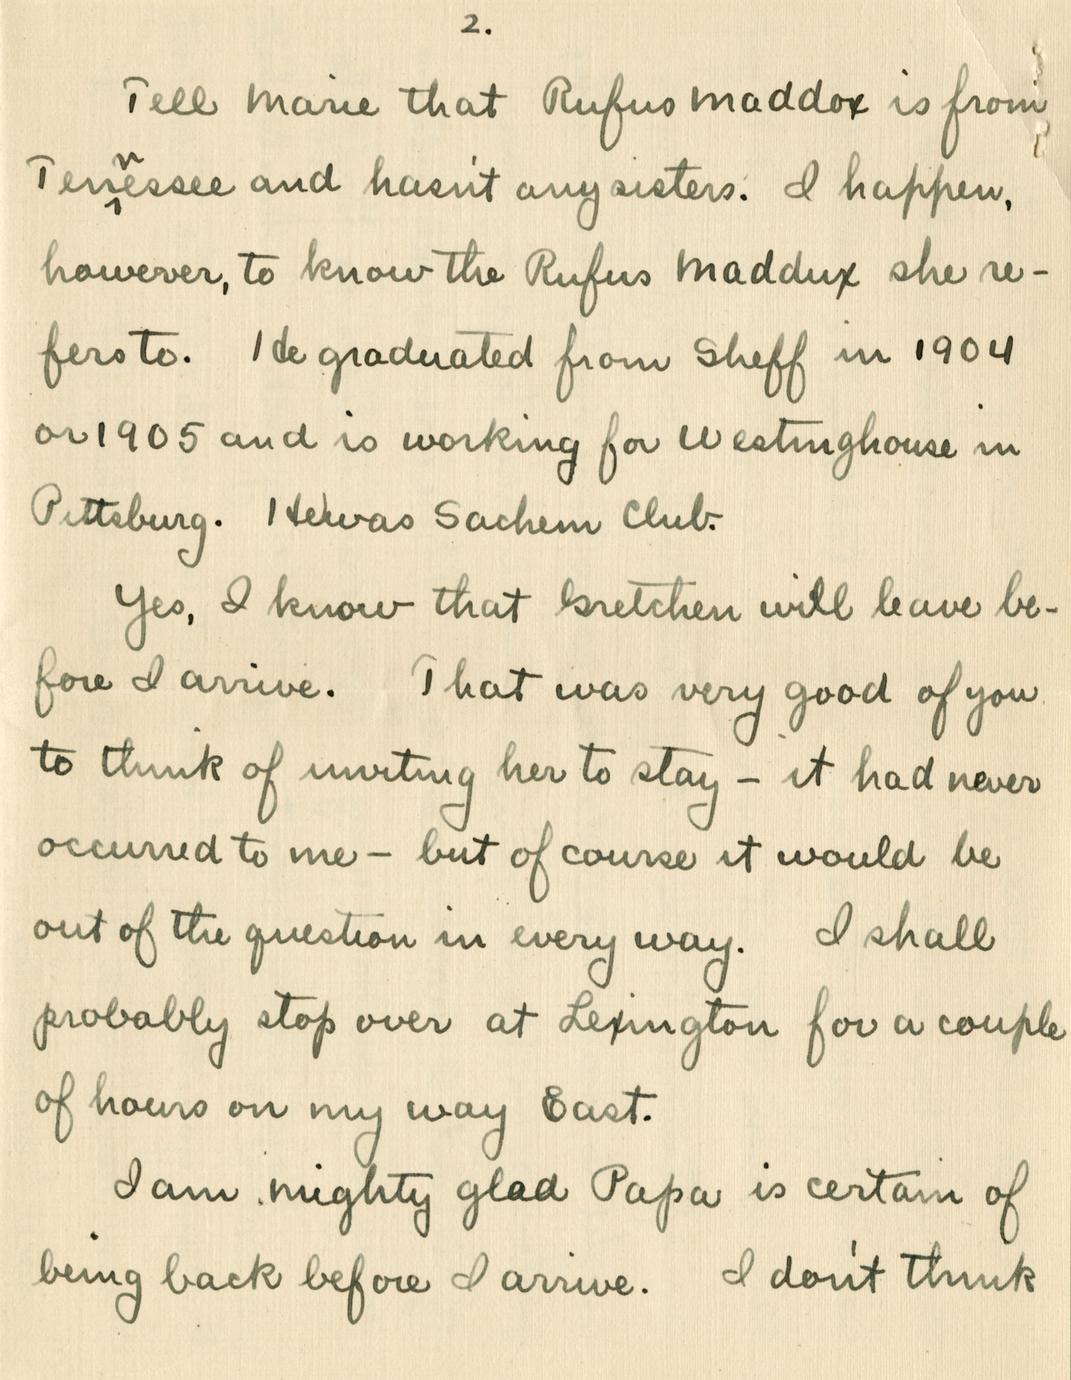 2.
Tell Marie that Rufus Maddox is from
Tennessee and hasn't any sisters. I happen,
however, to know the Rufus Maddux she re-
fers to. He graduated from Sheff in 1904
or 1905 and is working for Westinghouse in
Pittsburg. He was Sachem Club.
Yes, I know that Gretchen will leave be-
fore I arrive. That was very good of you
to think of inviting her to stay – it had never
occurred to me – but of course it would be
out of the question in every way. I shall
probably stop over at Lexington for a couple
of hours on my way East.
I am mighty glad Papa is certain of
being back before I arrive. I don't think